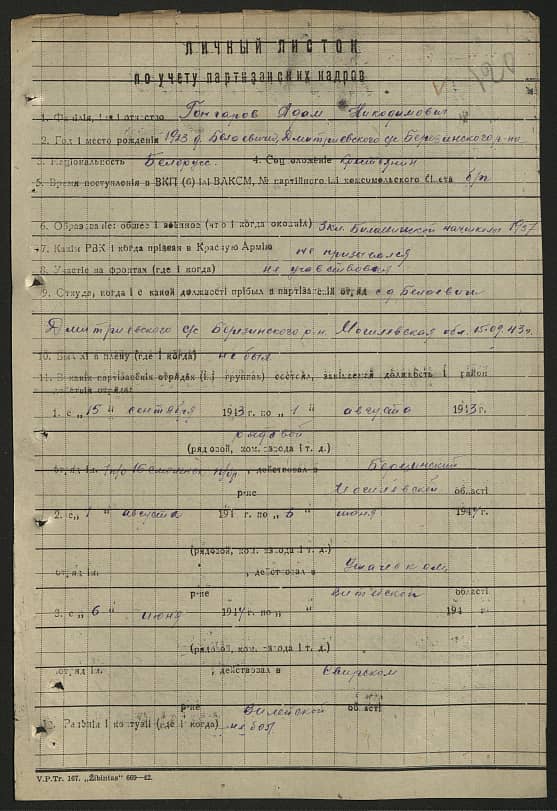 ЛИЧНЫЙ ЛИСТОК
по учету партизанских кадров
190
1. Фамилия, имя и отчество Гончаров Адам Никодимович
2. Год и место рождения 1923 д. Белоевичи, Дмитриевского с/с Березинского р-на
3. Національность Белорусс. 4. Соц. положение крестьянин
5. Время поступления в ВКП (б) ілі ВЛКСМ, № партійного ілі комсомольского білета б/п
6. Образованіе: общее і военное (что і когда окончіл) 3 кл. нач. школы 1937
7. Какім РВК і когда прізван в Красную Армію не призывался
8. Участіе на фронтах (где і когда) не участвовал
9. Откуда, когда і с какой должності прібыл в партізанскій отряд с д. Белоевичи
Дмитриевского с/с Березинского р-н. Могилевская обл. 15.09.43 г.
10. Был лі в плену (где і когда) не был
11. В какіх партізанскіх отрядах (ілі группах) состоял, занімаемая должность і район
действія отряда:
1. с „15" сентября 1943 г. по „1" августа 1943 г.
рядовой
(рядовой, ком. взвода і т. д.)
отряд ім. , действовал в Березинский
р-не Могилевской області
2. с „1" августа 194 г. по „6" июня 1944 г.
(рядовой, ком. взвода і т. д.)
отряд ім. , действовал в Ушачском.
р-не области
3. с „6" июня 1944 г. по „ " 194 г.
(рядовой, ком. взвода і т. д.)
отряд ім. , действовал в Свирском
р-не Вилейской області
12. Раненія і контузіі (где і когда) не был
V.P.Tr. 167. „Žibintas" 669—42.